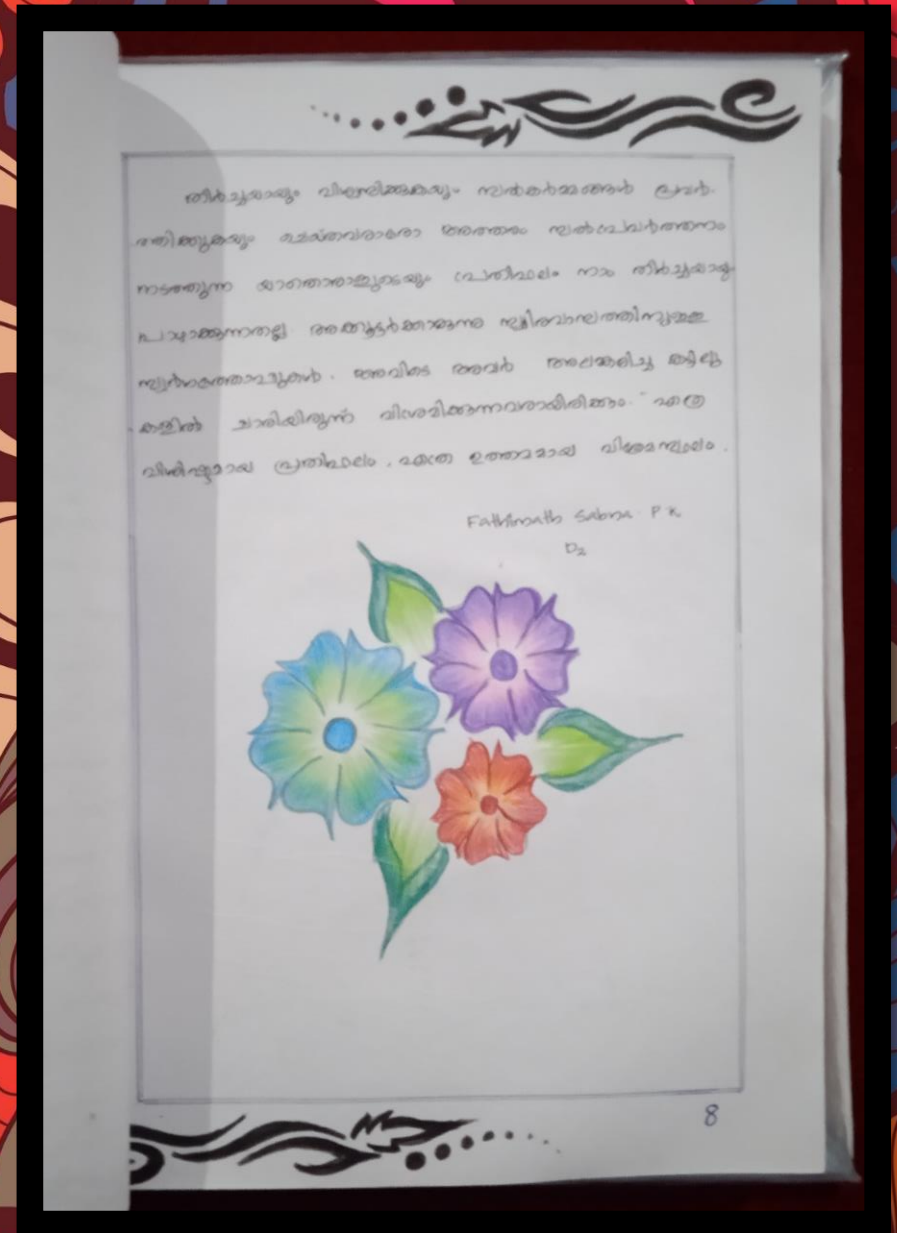 തീർച്ചയായും വിശ്വസിക്കുകയും സൽകർമ്മങ്ങൾ പ്രവർ.
ത്തിക്കുകയും ചെയ്തവരാരോ അത്തരം സൽപ്രവർത്തനം
നടത്തുന്ന യാതൊരാളുടെയും പ്രതിഫലം നാം തീർച്ചയായും
പാഴാക്കുന്നതല്ല അക്കൂട്ടർക്കാകുന്നു സ്ഥിരവാസത്തിനുള്ള
സ്വർഗത്തോപ്പുകൾ. അവിടെ അവർ അലങ്കരിച്ച കട്ടിലു
കളിൽ ചാരിയിരുന്ന് വിശ്രമിക്കുന്നവരായിരിക്കും. എത്ര
വിശിഷ്ടമായ പ്രതിഫലം. എത്ര ഉത്തമമായ വിശ്രമസ്ഥലം.
Fathimath Sabna P K
D2
8